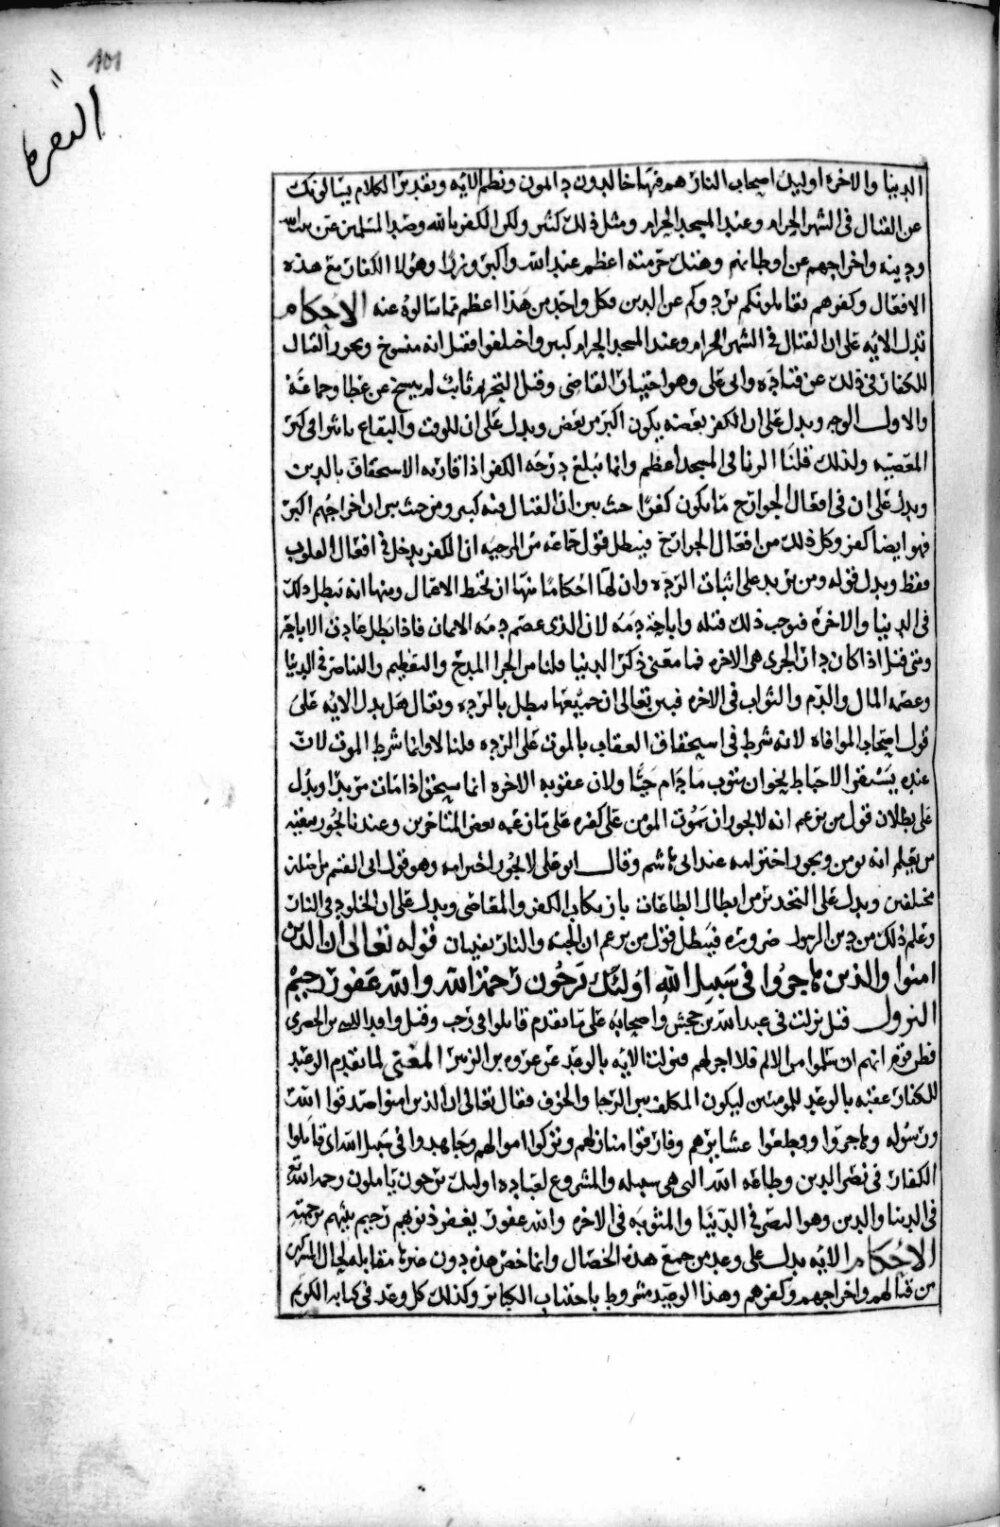 101
البقرة
الدنيا والاخرة اوليك اصحاب النار هم فيها خالدون دايمون ونظم الايه وتقدير الكلام يسالونك
عن القتال في الشهر الحرام وعند المسجد الحرام ومثل ذلك كثير ولكن الكفر بالله وصد المسلمين عن بيت الله
ودينه واخراجهم عن اوطانهم وهتك حرمته اعظم عند الله واكبر وزرا وهولا الكفار مع هذه
الافعال وكفرهم يقاتلونكم ليردوكم عن الدين وكل واحد من هذا اعظم مما سالوه عنه الاحكام
تدل الايه على ان القتال في الشهر الحرام وعند المسجد الحرام كبير واختلفوا فقيل انه منسوخ ويجوز القتال
للكفار في ذلك عن قتاده وابي علي وهو اختيار القاضي وقيل التحريم ثابت لم ينسخ عن عطا وجماعة
والاول الوجه ويدل على ان الكفر بعضه يكون اكبر من بعض ويدل على ان للوقت والبقاع تاثيرا في كبر
المعصيه ولذلك قلنا الزنا في المسجد اعظم وانما تبلغ درجه الكفر اذا قارنه الاستخفاف بالدين
ويدل على ان في افعال الجوارح ما يكون كفرا حيث بين ان القتال فيه كبير ومن حيث بين ان اخراجهم اكبر
فهو ايضا كفر وكل ذلك من افعال الجوارح فيبطل قول جماعه من المرجيه ان الكفر يدخل في افعال القلوب
فقط ويدل قوله ومن يرتدد على اثبات الردّه وان لها احكاما منها ان تحبط الاعمال ومنها انه يبطل ذلك
في الدنيا والاخرة فيوجب ذلك قتله واباحة دمه لان الذي عصم دمه الايمان فاذا بطل عادت الاباحة
ومتى قيل اذا كان دار الجزى هي الاخره فما معنى ذكر الدنيا قلنا من الجزا المدح والتعظيم والتناصر في الدنيا
وعصمه المال والدم والثواب في الاخره فبين تعالى ان جميعها يبطل بالرده ويقال هل يدل الايه على
قول اصحاب الموافاه لانه شرط في استحقاق العقاب بالموت على الرده قلنا لا وانما شرط الموت لان
عنده يستقر الاحباط بجواز ان يتوب ما دام حيًّا ولان عقوبه الاخره انما يستحق اذا مات مرتدا ويدل
على بطلان قول من يزعم انه لا يجوز ان يموت المومن على كفره على ما زعمه بعض المتاخرين وعندنا يجوز تبقيه
من يعلم انه يومن ويجوز اخترامه عند ابي هاشم وقال ابو علي لا يجوز اخترامه وهو قول ابي القسم من
مختلفين ويدل على التحذير من ابطال الطاعات بارتكاب الكفر والمعاصي ويدل على ان الخلود في النار
وعلم ذلك من دين الرسول ضرورة فيبطل قول من يزعم ان الجنه والنار يفنيان قوله تعالى ان الذين
امنوا والذين هاجروا في سبيل الله اولئك يرجون رحمة الله والله غفور رحيم
النزول قيل نزلت في عبدالله بن جحش واصحابه على ما تقدم قاتلوا في رجب وقتل واقد الليثي بن الحضرمي
فظن قوم انهم ان سلموا من الاثم فلا اجر لهم فنزلت الايه بالوعد عن عروه بن الزبير المعنى لما تقدم الوعيد
للكفار عقبه بالوعد للمومنين ليكون المكلف بين الرجا والخوف فقال تعالى ان الذين امنوا صدقوا الله
ورسوله وهاجروا وقطعوا عشايرهم وفارقوا منازلهم وتركوا اموالهم وجاهدوا في سبيل الله اي قاتلوا
الكفار في نصر الدين وطاعه الله التي هي سبيله والمشروع لعباده اوليك يرجون ياملون رحمه الله
في الدنيا والدين وهو النصر في الدنيا والمثوبه في الاخره والله غفور يغفر ذنوبهم رحيم يثيبهم برحمته
الاحكام الايه يدل على وعد من جمع هذه الخصال وانما خص هذه دون غيرها مقابله لحال المشركين
من قتالهم واخراجهم وكفرهم وهذا الوعيد مشروط باجتناب الكباير وكذلك كل وعد في كتابه الكريم